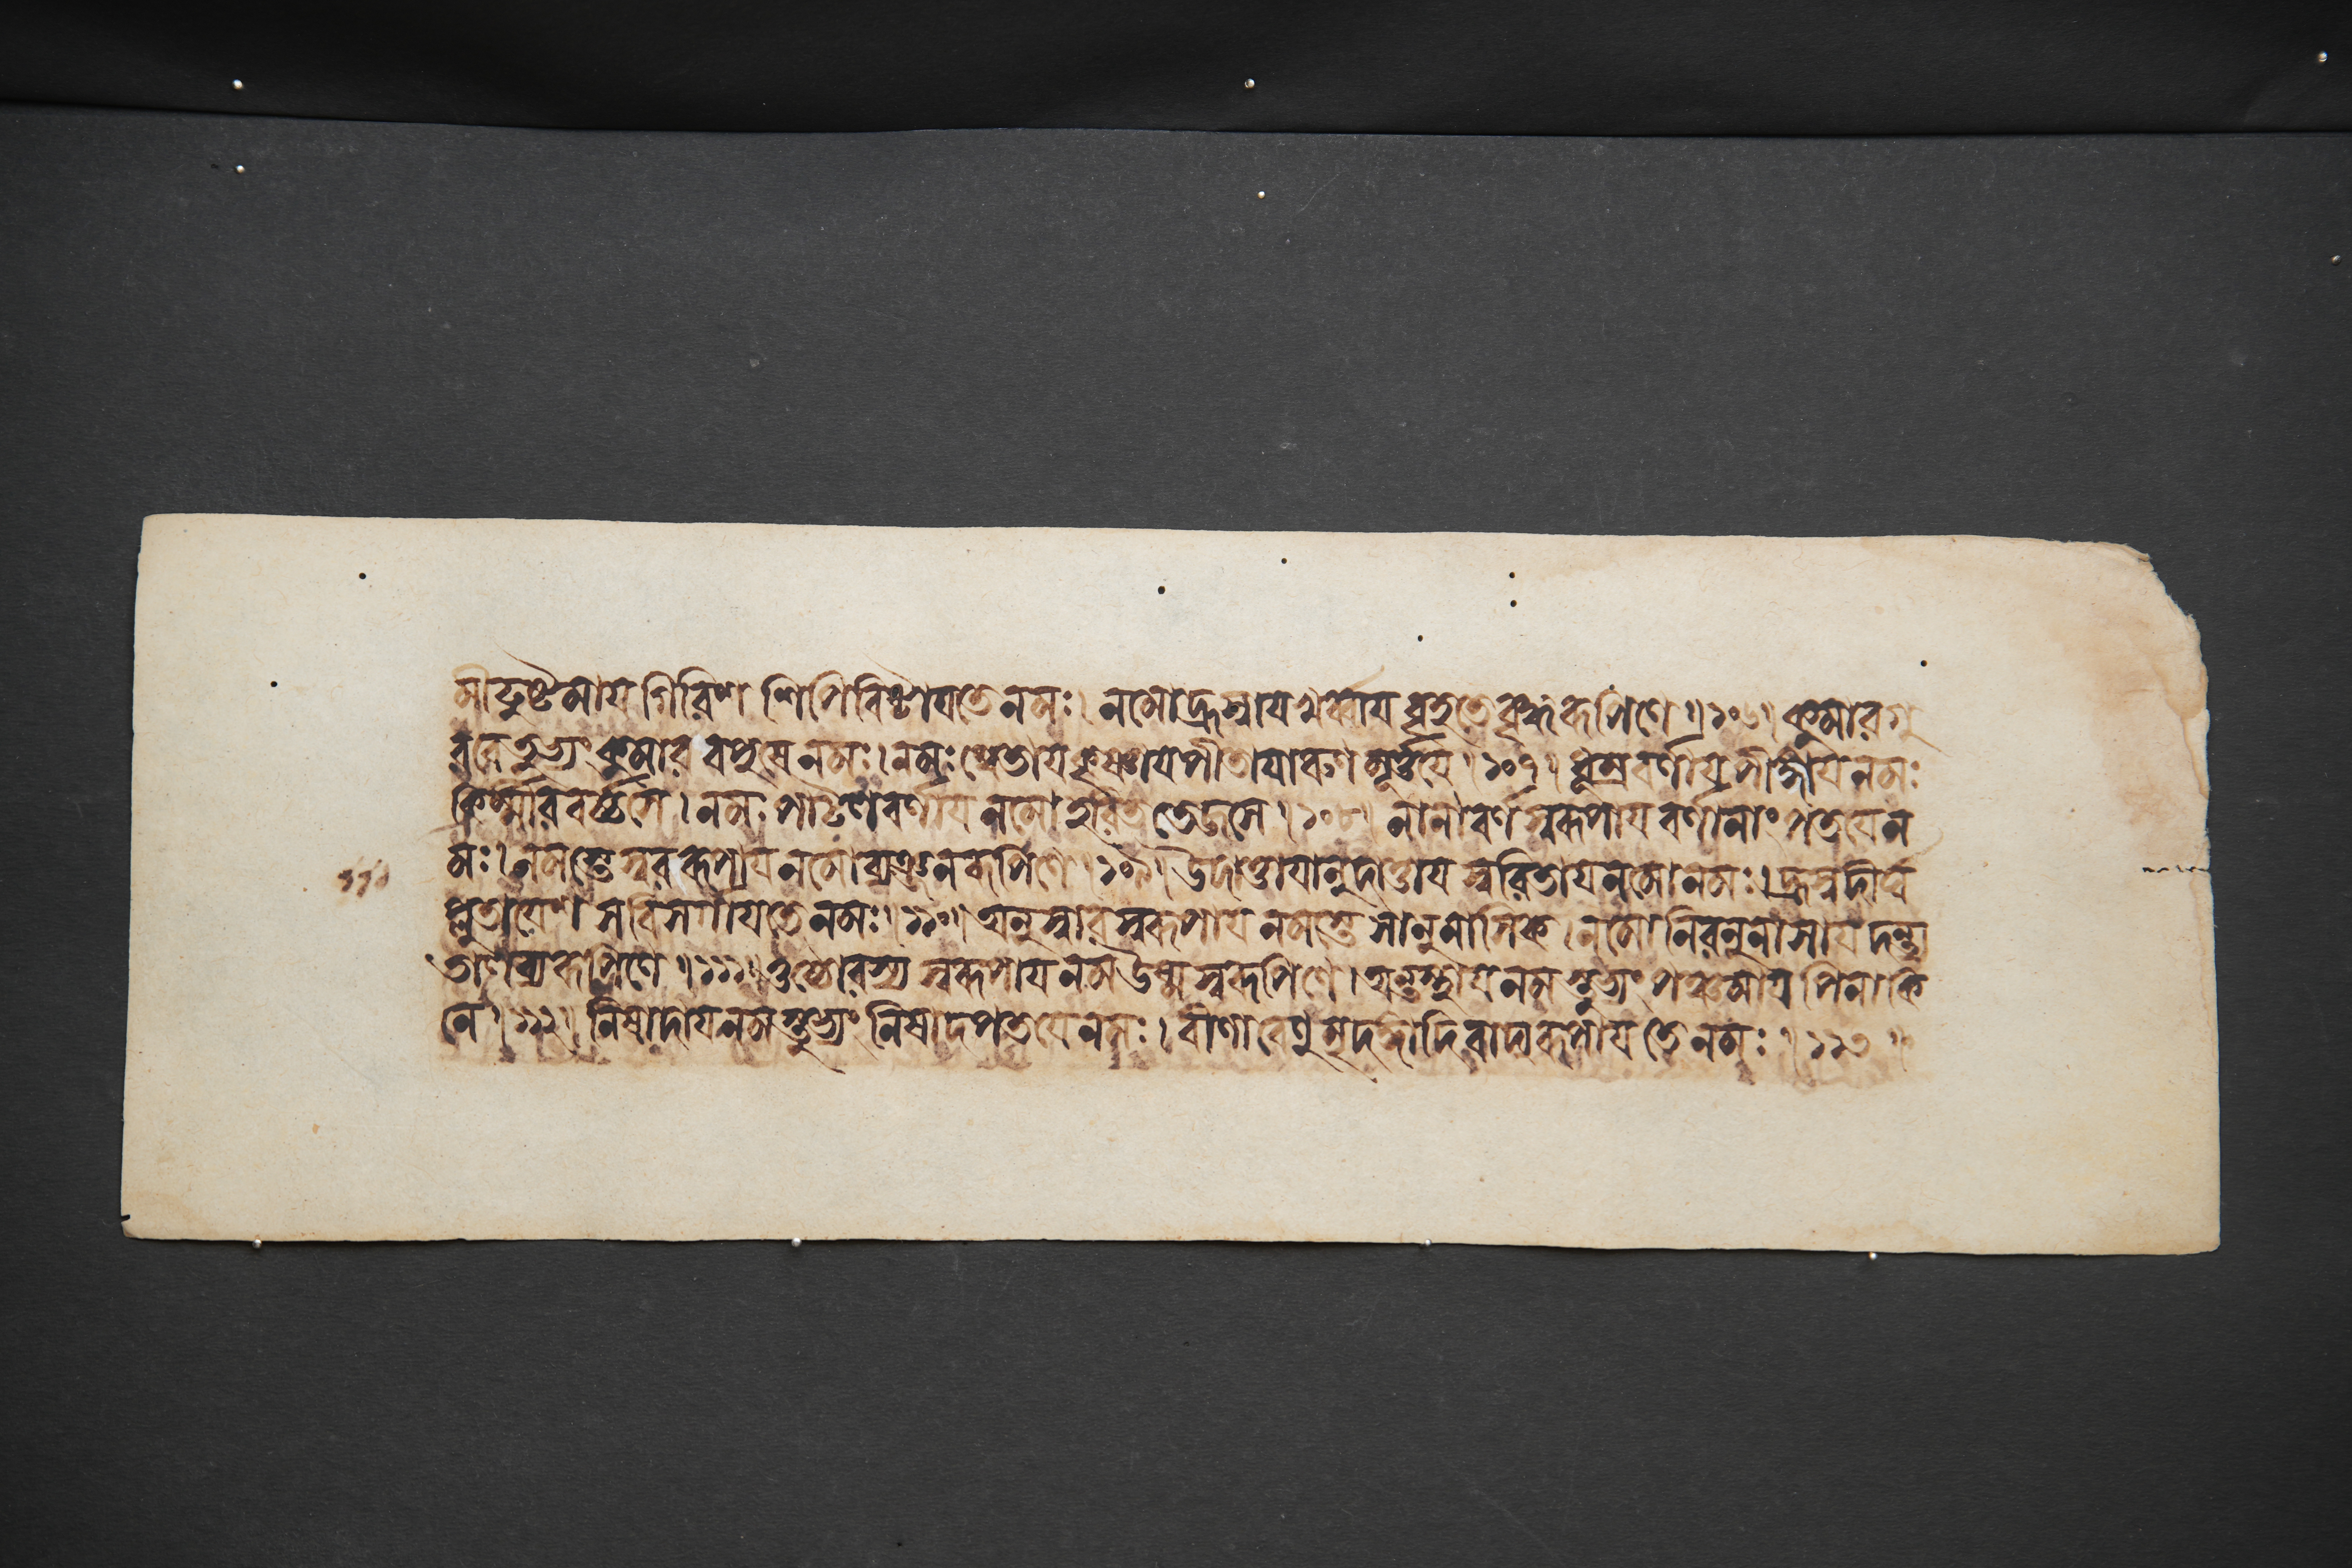 মীঢুষ্টমায গিরিশ শিপিবিষ্টাযতে নমঃ। নমো হ্রস্বায খর্ব্বায বৃহতে বৃহরূপিণে॥১০৬॥ কুমারগু
রবে তুভ্যং কুমার বপুষে নমঃ। নমঃ শ্বেতায কৃষ্ণায পীতাযারুণ মূর্ত্তযে॥১০৭॥ ধূম্রবর্ণায পীঙ্গায নমঃ
কির্ম্মীরবর্চ্চসে। নমঃ পাটলবর্ণায নমো হরিত তেজসে॥১০৮॥ নানাবর্ণ স্বরূপায বর্ণানাং পতযে ন
মঃ। নমস্তে স্বররূপায নমো ব্যঞ্জনরূপিণে॥১০৯॥ উদাত্তাযানুদাত্তায স্বরিতায নমো নমঃ। হ্রস্বদীর্ঘ
প্লুতাযেশ সবিসর্গাযতে নমঃ॥১১০॥ অনুস্বার স্বরূপায নমস্তে সানুনাসিক। নমো নিরনুনাসায দন্ত্য
তালব্যরূপিণে॥১১১॥ ওষ্ঠোরস্য স্বরূপায নম উষ্ম স্বরূপিণে। অন্তস্থায নমস্তুভ্যং পঞ্চমায পিনাকি
নে॥১১২॥ নিষাদায নমস্তুভ্যং নিষাদপতযে নমঃ। বীণাবেণুমৃদঙ্গাদি বাদ্যরূপাযতে নমঃ॥১১৩॥